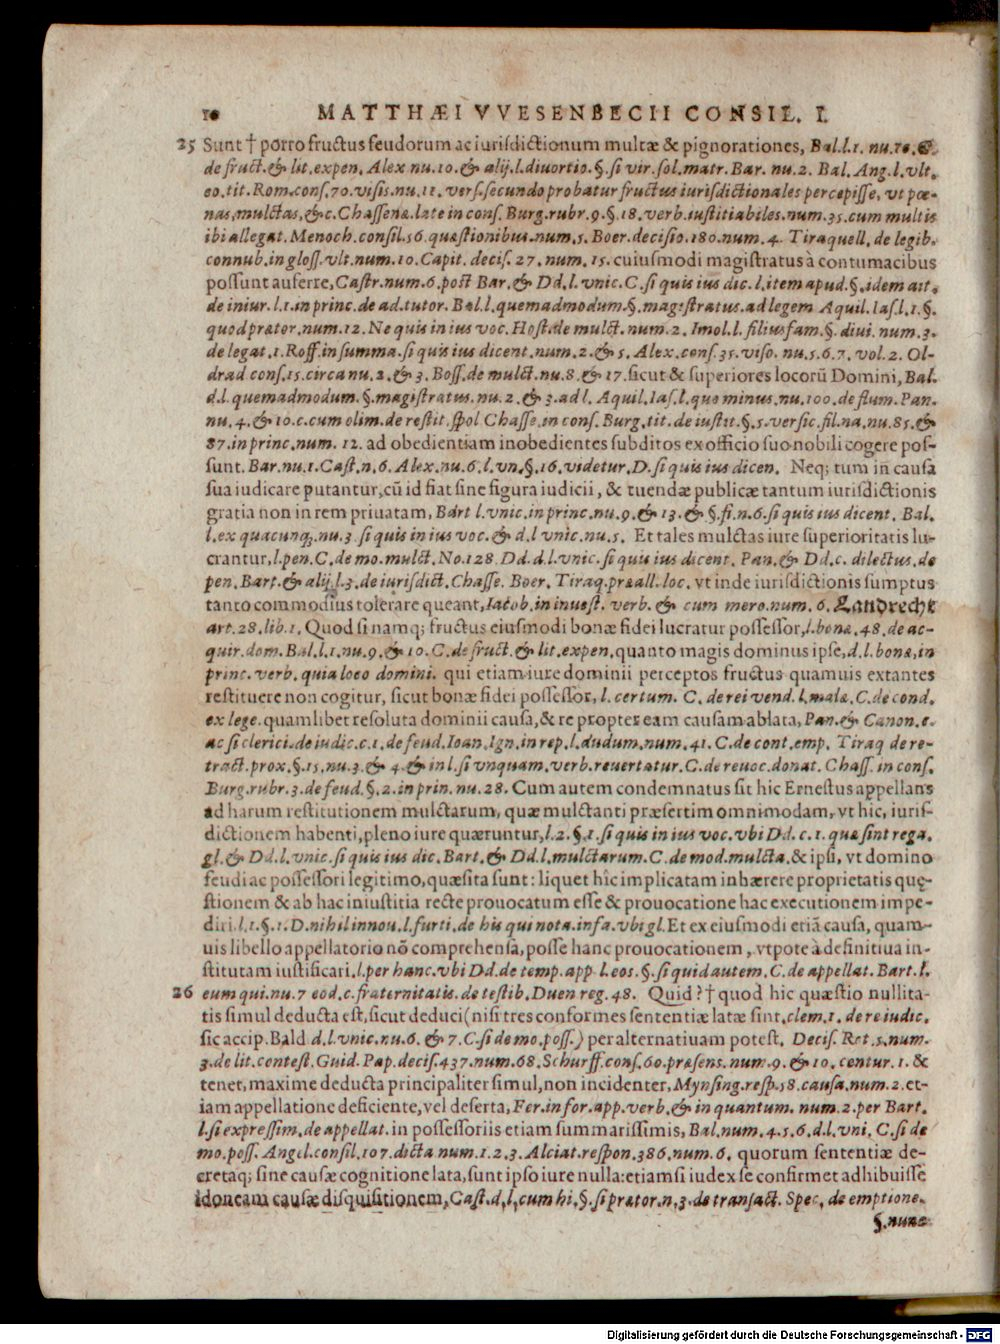 10 MATTHÆI VVESENBECII CONSIL. I.
25 Sunt † porro fructus feudorum ac iurisdictionum multæ & pignorationes, Bal. l. 1. nu. 18. C.
de fruct. & lit. expen. Alex nu. 10. & alij. l. diuortio. §. si vir. sol. matr. Bar. nu. 2. Bal. Ang. l. vlt.
eo. tit. Rom. conſ. 70. viſis. nu. 11. verſ. ſecundo probatur fructus iurisdictionales percepiſſe, vt pœ-
nas, mulctas, &c. Chaſſena. late in conſ. Burg. rubr. 9. §. 18. verb. iuſtitiabiles. num. 35. cum multis
ibi allegat. Menoch. conſil. 56. quæſtionibus. num. 5. Boer. deciſio. 180. num. 4. Tiraquell. de legib.
connub. in gloſſ. vlt. num. 10. Capit. deciſ. 27. num. 15. cuiusmodi magiſtratus à contumacibus
poſſunt auferre, Caſtr. num. 6. poſt Bar. & Dd. l. vnic. C. ſi quis ius dic. l. item apud. §. idem ait.
de iniur. l. 1. in princ. de ad. tutor. Bal. l. quemadmodum. §. magiſtratus. ad legem Aquil. Iaſ. l. 1. §.
quod prætor. num. 12. Ne quis in ius voc. Hoſt. de mulct. num. 2. Imol. l. filiusfam. §. diui. num. 3.
de legat. 1. Roff. in ſumma. ſi quis ius dicent. num. 2. & 5. Alex. conſ. 35. viſo. nu. 5. 6. 7. vol. 2. Ol-
drad conſ. 15. circa nu. 2. & 3. Boſſ. de mulct. nu. 8. & 17. ſicut & ſuperiores locorũ Domini, Bal.
d. l. quemadmodum. §. magiſtratus. nu. 2. & 3. ad l. Aquil. Iaſ. l. quo minus, nu. 100. de flum. Pan.
nu. 4. & 10. c. cum olim. de reſtit. ſpol Chaſſe. in conſ. Burg. tit. de iuſtit. §. 5. verſic. fil. na, nu. 85. &
87. in princ. num. 12. ad obedientiam inobedientes ſubditos ex officio ſuo nobili cogere poſ-
ſunt. Bar. nu. 1. Caſt. n. 6. Alex. nu. 6. l. vn. §. 16. videtur, D. ſi quis ius dicen. Neq; tum in cauſa
ſua iudicare putantur, cũ id fiat ſine figura iudicii, & tuendæ publicæ tantum iurisdictionis
gratia non in rem priuatam, Bart l. vnic. in princ. nu. 9. & 13. & §. fi. n. 6. ſi quis ius dicent. Bal.
l. ex quacunq;. nu. 3 ſi quis in ius voc. & d. l vnic. nu. 5. Et tales mulctas iure ſuperioritatis lu-
crantur, l. pen. C. de mo. mulct. No. 128 Dd. d. l. vnic. ſi quis ius dicent. Pan. & Dd. c. dilectus. de
pen. Bart. & alij l. 3. de iurisdict. Chaſſe. Boer. Tiraq. præall. loc. vt inde iurisdictionis ſumptus
tanto commodius tolerare queant, Iacob. in inueſt. verb. & cum mero. num. 6. Landrecht
art. 28. lib. 1. Quod ſi namq; fructus eiusmodi bonæ fidei lucratur poſſeſſor, l. bonæ. 48. de ac-
quir. dom. Bal. l. 1. nu. 9. & 10. C. de fruct. & lit. expen. quanto magis dominus ipſe, d. l. bonæ, in
princ. verb. quia loco domini. qui etiam iure dominii perceptos fructus quamuis extantes
reſtituere non cogitur, ſicut bonæ fidei poſſeſſor, l. certum. C. de rei vend. l. mala. C. de cond.
ex lege. quamlibet reſoluta dominii cauſa, & re propter eam cauſam ablata, Pan. & Canon. c.
ac ſi clerici. de iudic. c. 1. de feud. Ioan. Ign. in rep. l. dudum. num. 41. C. de cont. emp. Tiraq de re-
tract. prox. §. 15. nu. 3. & 4. & in l. ſi vnquam. verb. reuertatur. C. de reuoc. donat. Chaſſ. in conſ.
Burg. rubr. 3. de feud. §. 2. in prin. nu. 28. Cum autem condemnatus ſit hic Erneſtus appellans
ad harum reſtitutionem mulctarum, quæ mulctanti præſertim omnimodam, vt hic, iuriſ-
dictionem habenti, pleno iure quæruntur, l. 2. §. 1. ſi quis in ius voc. vbi Dd. c. 1. quæ ſint rega.
gl. & Dd. l. vnic. ſi quis ius dic. Bart. & Dd. l. mulctarum. C. de mod. mulcta. & ipſi, vt domino
feudi ac poſſeſſori legitimo, quæſita ſunt: liquet hîc implicatam inhærere proprietatis quę-
ſtionem & ab hac iniuſtitia recte prouocatum eſſe & prouocatione hac executionem impe-
diri. l. 1. §. 1. D. nihil innou. l. furti. de his qui nota. infa. vbi gl. Et ex eiusmodi etiã cauſa, quam-
uis libello appellatorio nõ comprehenſa, poſſe hanc prouocationem, vtpote à definitiua in-
ſtitutam iuſtificari. l. per hanc. vbi Dd. de temp. app. l. eos. §. ſi quid autem. C. de appellat. Bart. l.
26 eum qui. nu. 7 eod. c. fraternitatis. de teſtib. Duen reg. 48. Quid? † quod hic quæſtio nullita-
tis ſimul deducta eſt, ſicut deduci (niſi tres conformes ſententiæ latæ ſint, clem. 1. de re iudic.
ſic accip. Bald d. l. vnic. nu. 6. & 7. C. ſi de mo. poſſ.) per alternatiuam poteſt. Deciſ. Rot. 5. num.
3. de lit. conteſt. Guid. Pap. deciſ. 437. num. 68. Schurff. conſ. 60. præſens. num. 9. & 10. centur. 1. &
tenet, maxime deducta principaliter ſimul, non incidenter, Mynſing. reſp. 18. cauſa. num. 2. et-
iam appellatione deficiente, vel deſerta, Fer. in for. app. verb. & in quantum. num. 2. per Bart.
l. ſi expreſſim. de appellat. in poſſeſſoriis etiam ſummariſſimis, Bal. num. 4. 5. 6. d. l. vni. C. ſi de
mo. poſſ. Angel. conſil. 107. dicta num. 1. 2. 3. Alciat. reſpon. 386. num. 6. quorum ſententiæ de-
cretaq; ſine cauſæ cognitione lata, ſunt ipſo iure nulla: etiamſi iudex ſe confirmet adhibuiſſe
idoneam cauſæ disquiſitionem, Caſt. d. l. cum hi. §. ſi prætor. n. 3. de tranſact. Spec. de emptione.
§. nunc
Digitalisierung gefördert durch die Deutsche Forschungsgemeinschaft - DFG